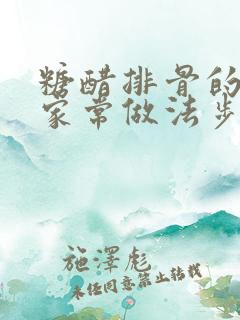 糖醋排骨的
家常做法步
施澤彪
未经同意禁止转载